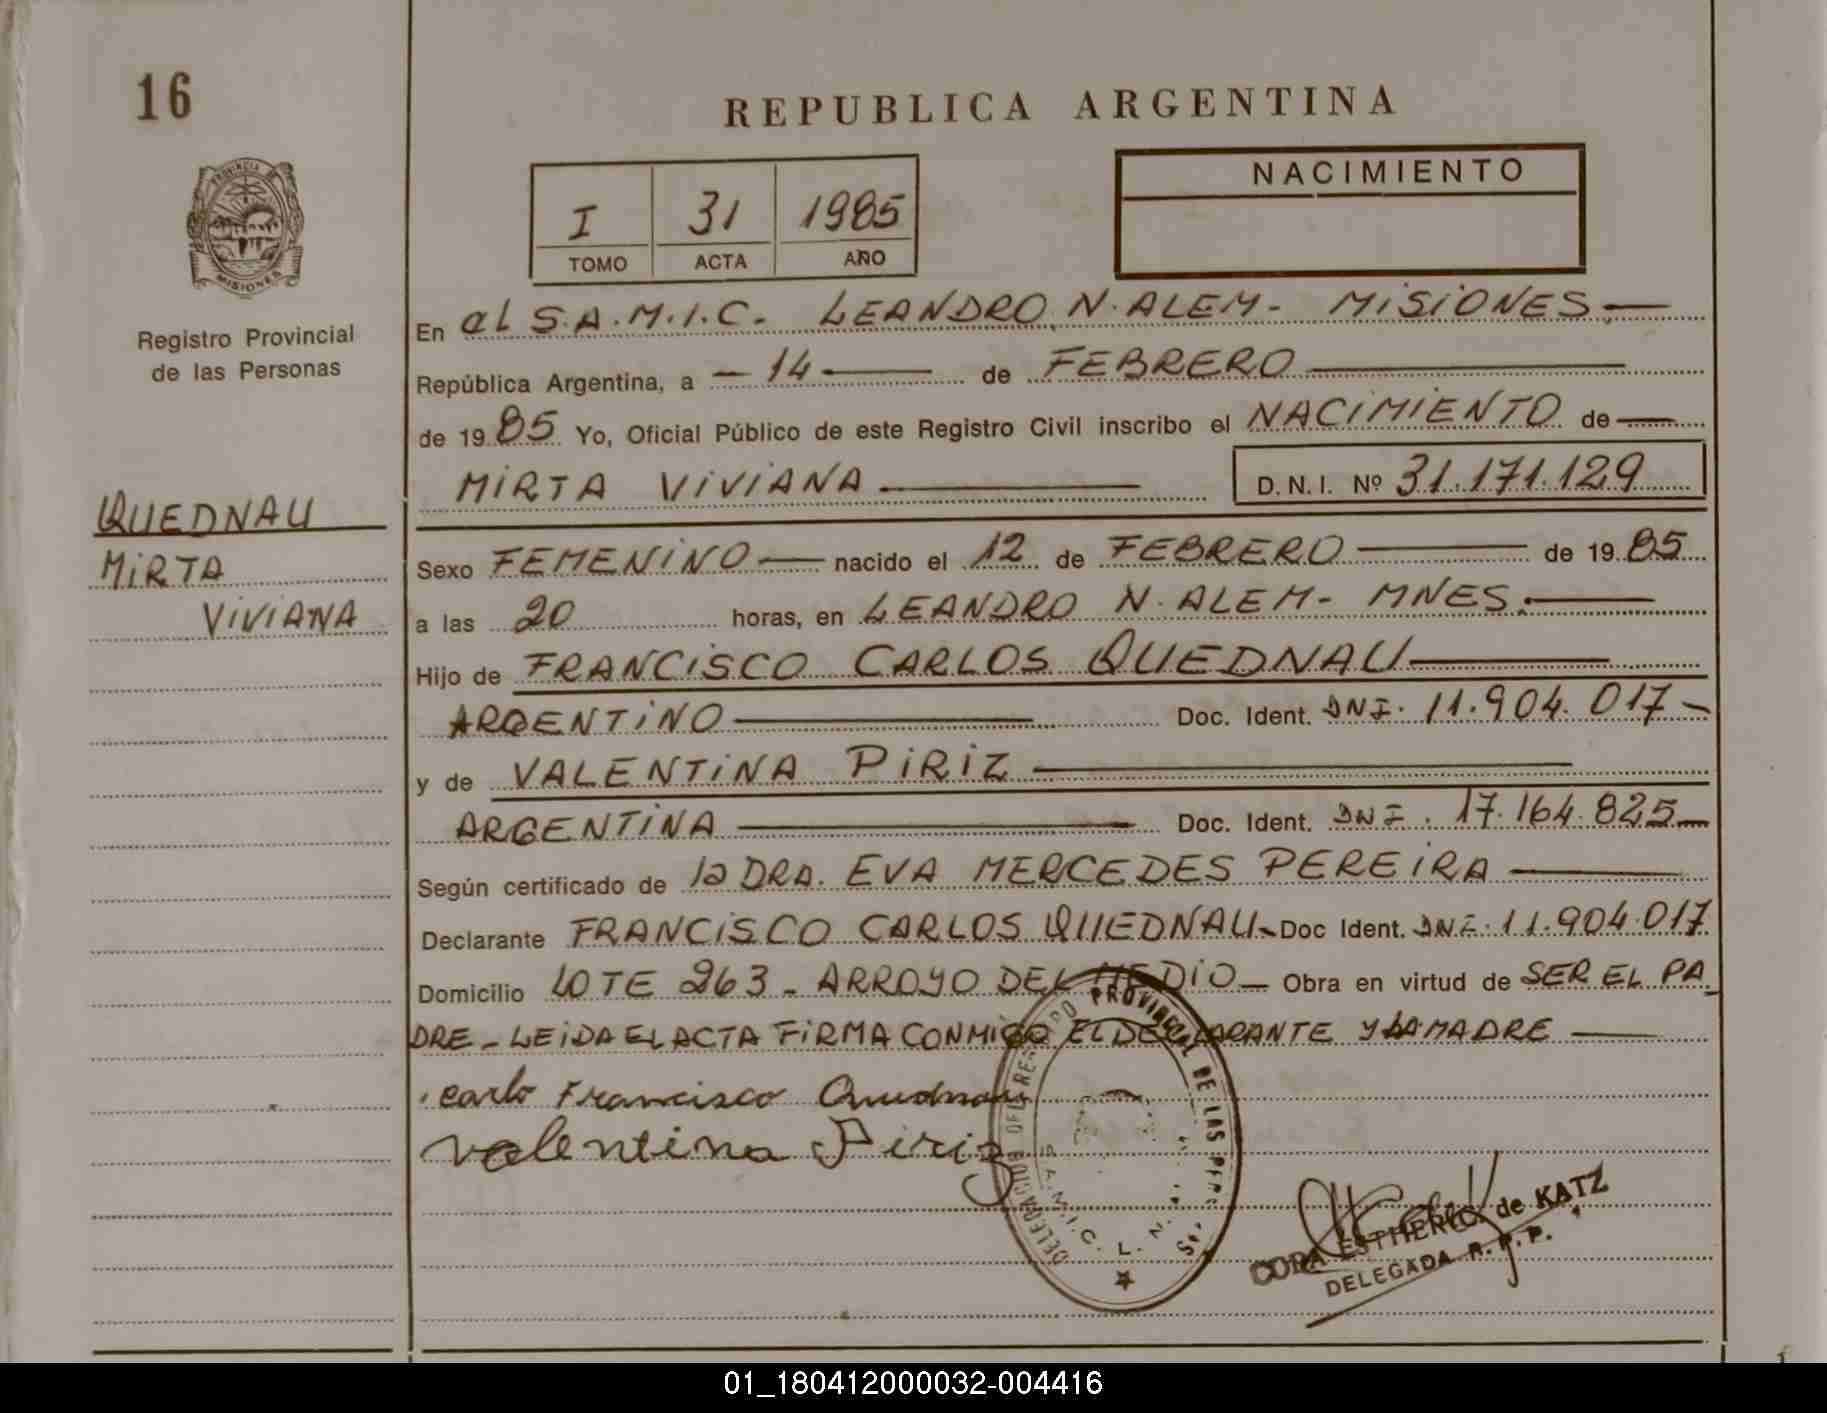 16
REPUBLICA ARGENTINA
PROVINCIA DE
MISIONES
I 31 1985
TOMO ACTA AÑO
NACIMIENTO
Registro Provincial
de las Personas
QUEDNAU
MIRTA
VIVIANA
En el S.A.M.I.C. LEANDRO N. ALEM - MISIONES.—
República Argentina, a — 14 — de FEBRERO —
de 19 85 Yo, Oficial Público de este Registro Civil inscribo el NACIMIENTO de —
MIRTA VIVIANA — D.N.I. Nº 31.171.129
Sexo FEMENINO — nacido el 12 de FEBRERO — de 19 85
a las 20 horas, en LEANDRO N. ALEM - MNES. —
Hijo de FRANCISCO CARLOS QUEDNAU —
ARGENTINO — Doc. Ident. DNI. 11.904.017 —
y de VALENTINA PIRIZ —
ARGENTINA — Doc. Ident. DNI. 17.164.825 —
Según certificado de la DRA. EVA MERCEDES PEREIRA —
Declarante FRANCISCO CARLOS QUEDNAU - Doc Ident. DNI. 11.904.017
Domicilio LOTE 263 - ARROYO DEL MEDIO — Obra en virtud de SER EL PA_
DRE - LEIDA EL ACTA FIRMA CONMIGO EL DECLARANTE Y LA MADRE —
Carlo Francisco Quednau
Valentina Piriz
DELEGACION DEL REGISTRO PROVINCIAL DE LAS PERS
S.A.M.I.C. L. N. A.
CORA ESTHER C. de KATZ
DELEGADA R.P.P.
01_180412000032-004416